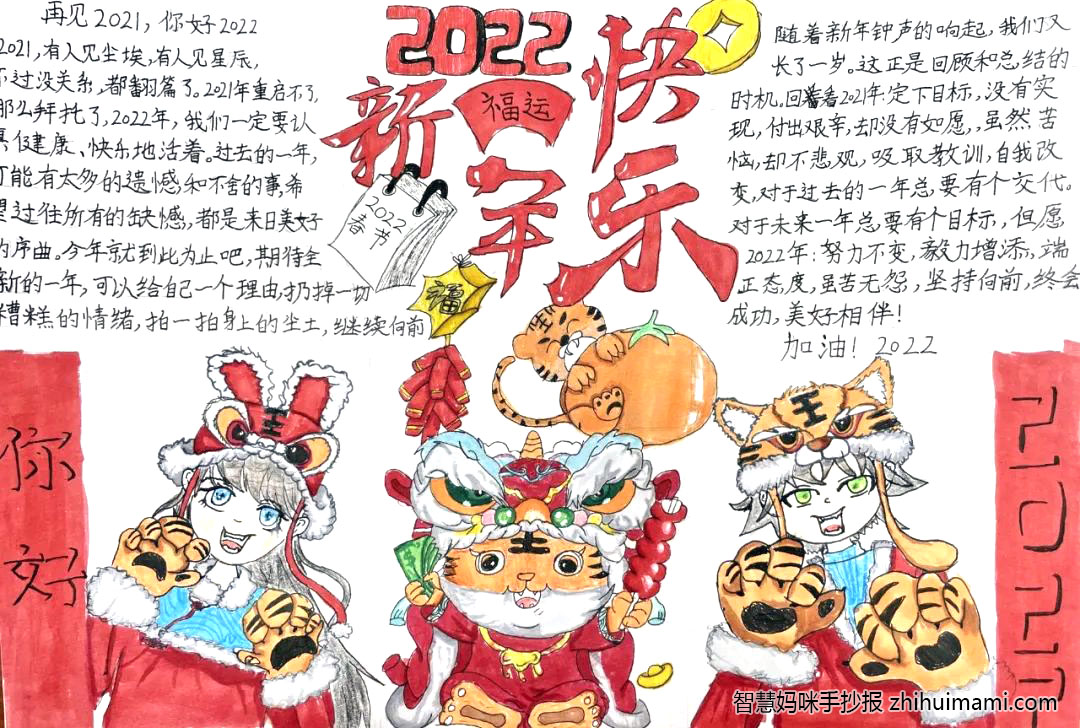 再见2021，你好2022
2021，有人见尘埃，有人见星辰，
不过没关系，都翻篇了。2021年重启不了，
那么拜托了，2022年，我们一定要认
真健康、快乐地活着。过去的一年，
可能有太多的遗憾和不舍的事，希
望过往所有的缺憾，都是来日美好
的序曲。今年就到此为止吧，期待全
新的一年，可以给自己一个理由，扔掉一切
糟糕的情绪，拍一拍身上的尘土，继续向前
2022
新年快乐
福运
2022
春节
福
随着新年钟声的响起，我们又
长了一岁。这正是回顾和总结的
时机。回看2021年：定下目标，没有实
现，付出艰辛，却没有如愿，虽然苦
恼，却不悲观，吸取教训，自我改
变，对于过去的一年总要有个交代。
对于未来一年总要有个目标，但愿
2022年：努力不变，毅力增添，端
正态度，虽苦无怨，坚持向前，终会
成功，美好相伴！
加油！2022
你好
王
王
王
2022
智慧妈咪手抄报 zhihuimami.com